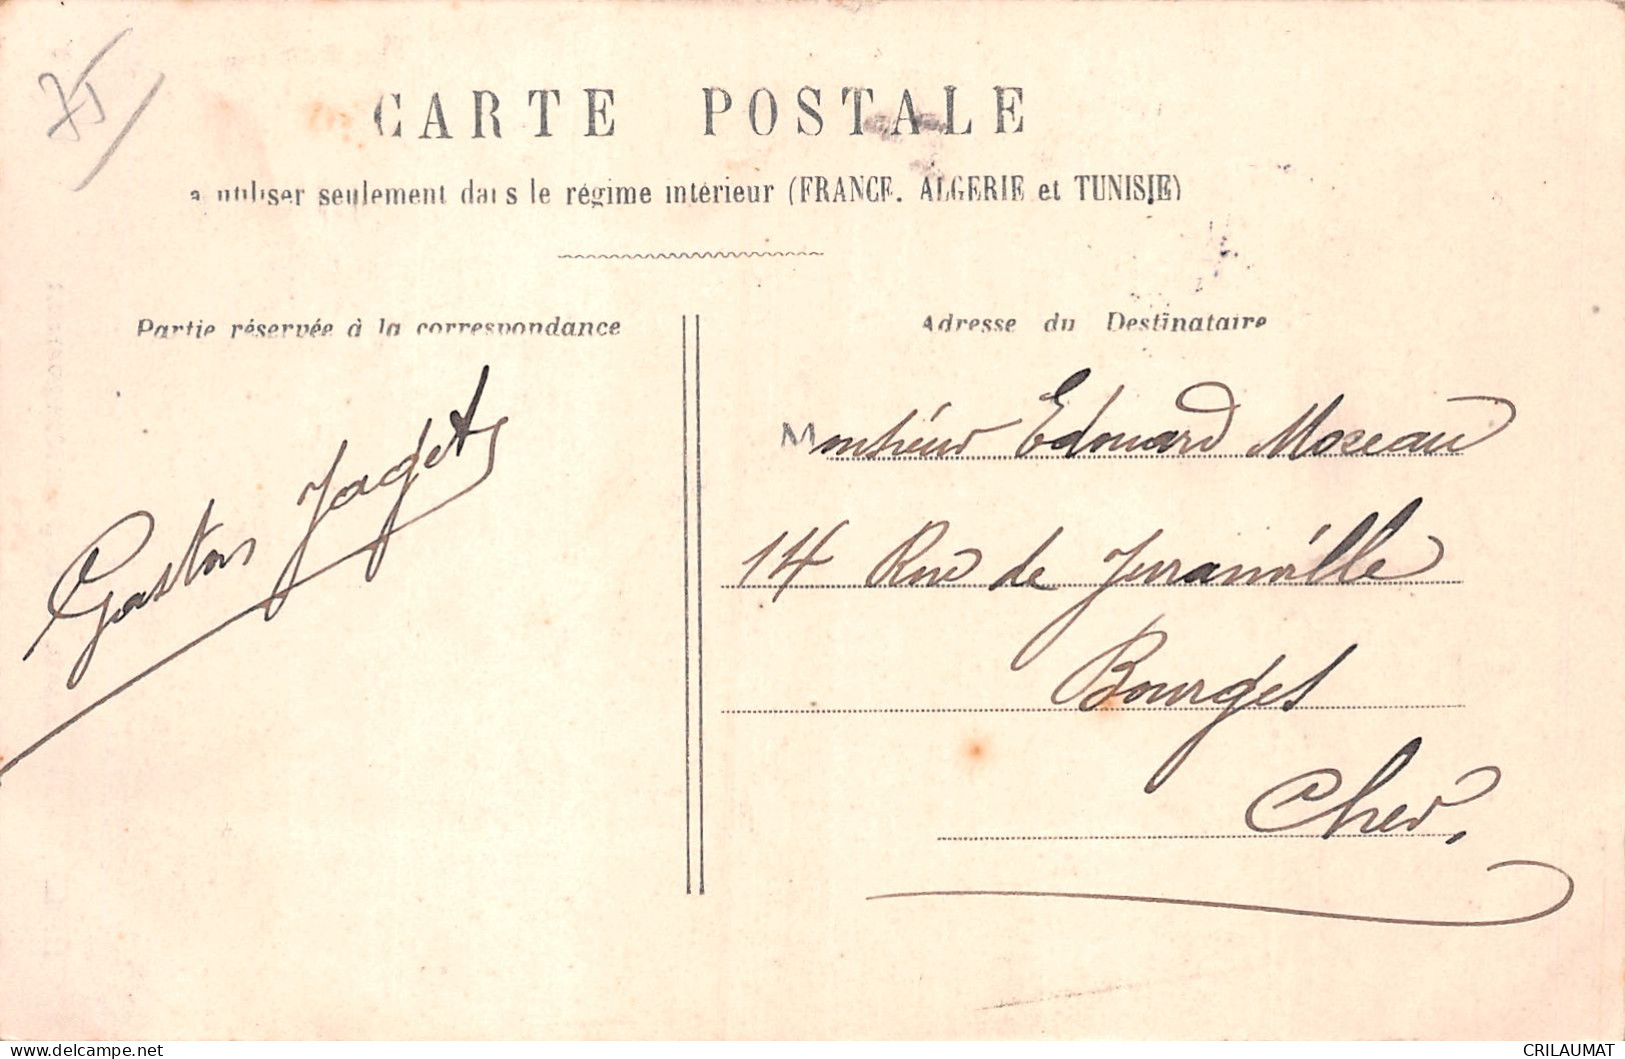 75
CARTE POSTALE
a utiliser seulement dans le régime intérieur (FRANCE, ALGERIE et TUNISIE)
Partie réservée à la correspondance
Gaston Jaget
Adresse du Destinataire
Monsieur Edouard Moreau
14 Rue de Juranville
Bourges
Cher.
CRILAUMAT